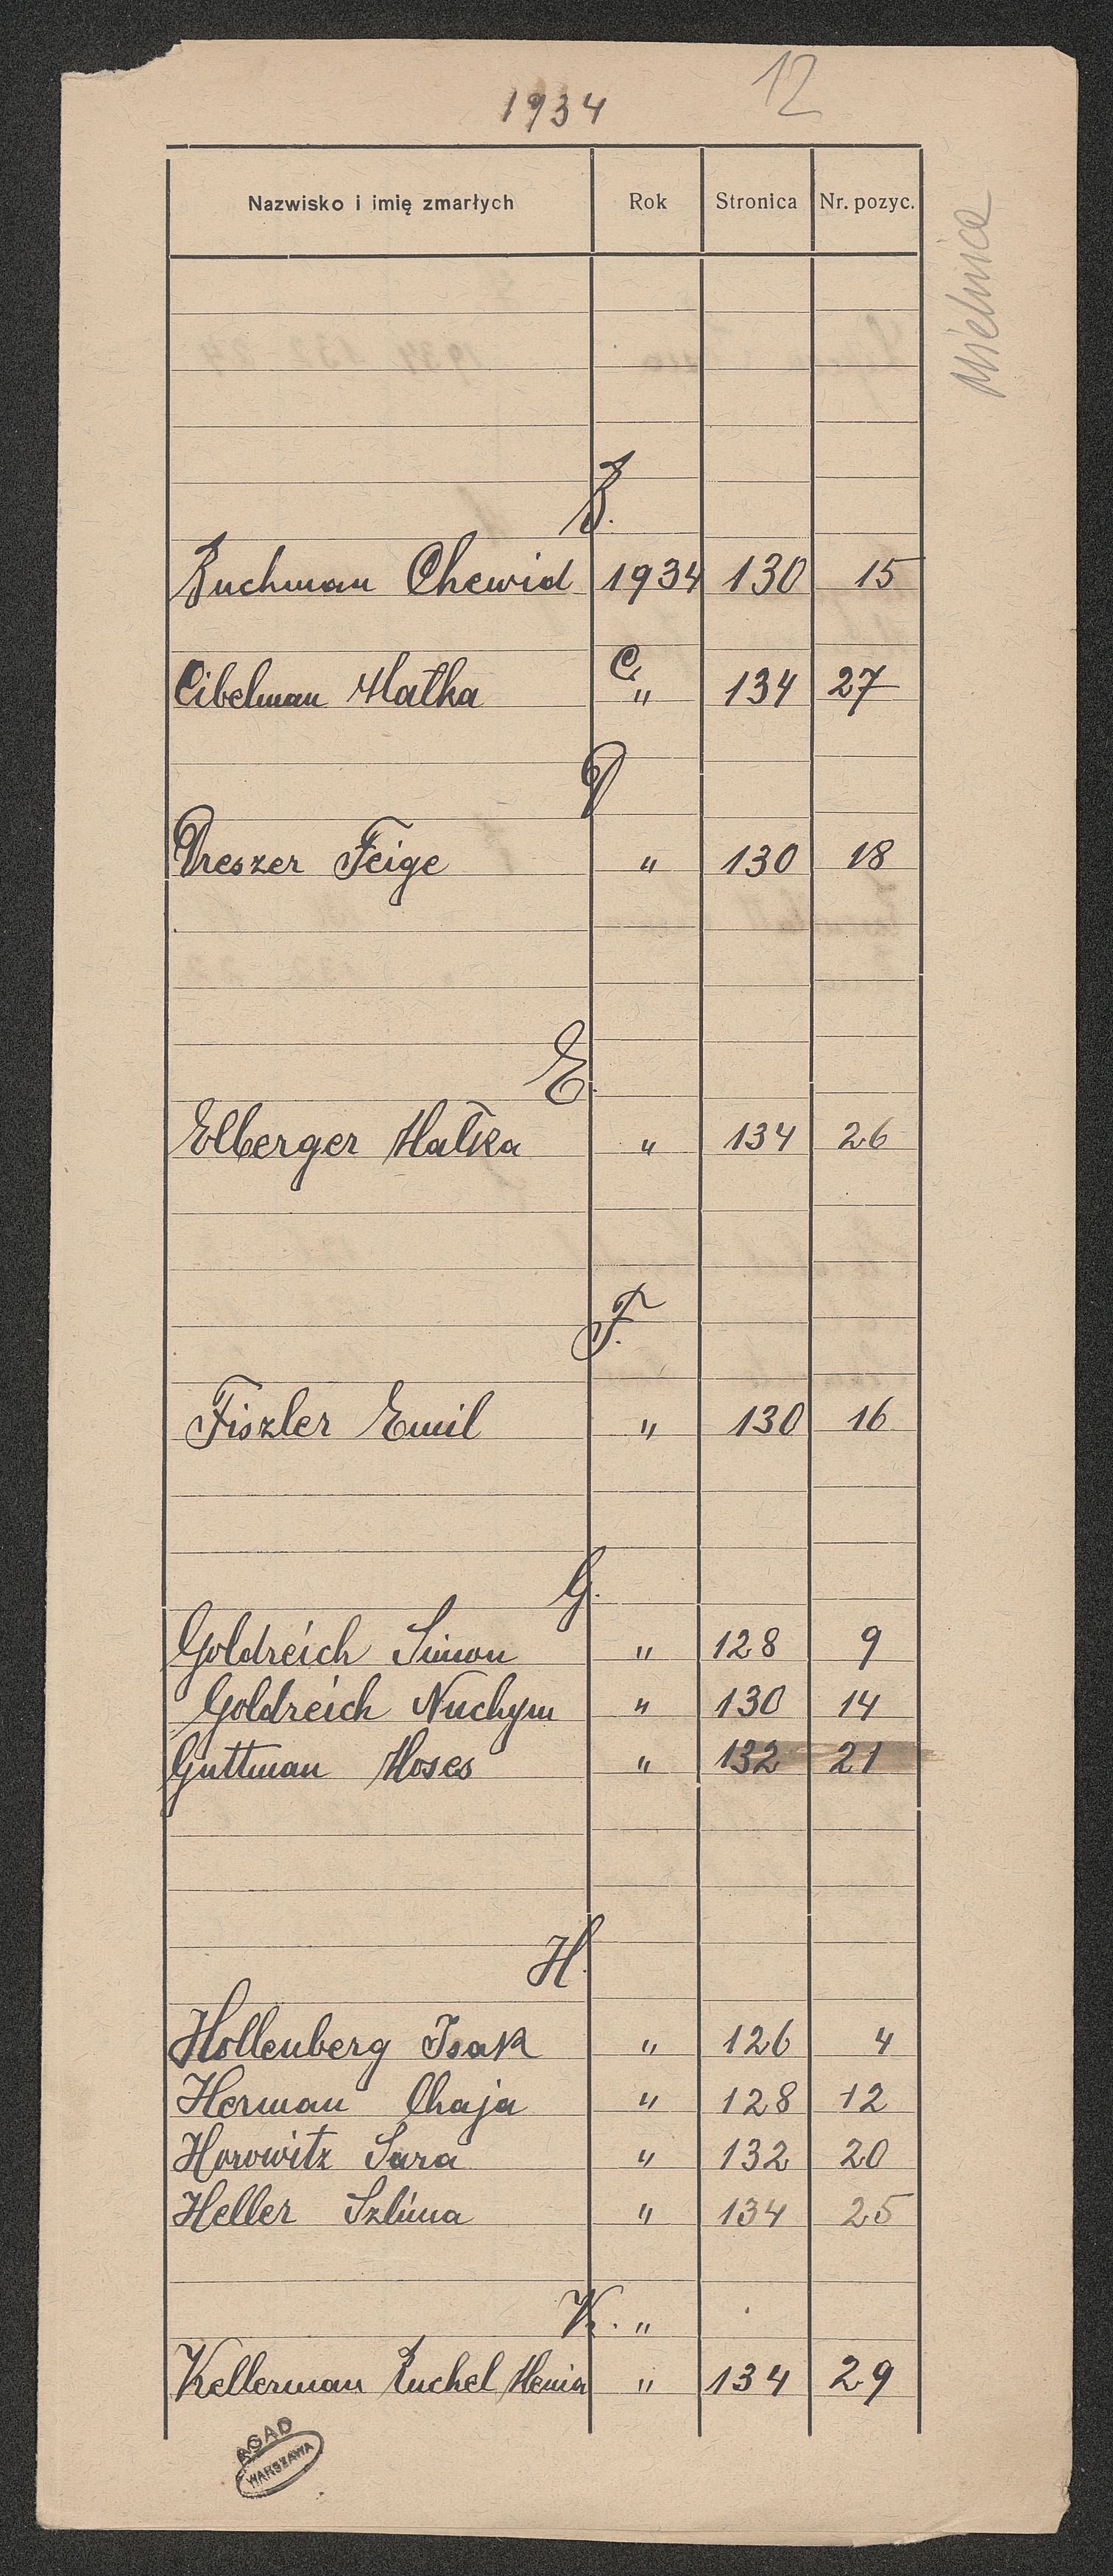 12
1934
Nazwisko i imię zmarłych Rok Stronica Nr. pozyc.
Mielnica
B.
Buchman Chewid 1934 130 15
C.
Cibelman Matka " 134 27
D
Dreszer Feige " 130 18
E.
Elberger Matka " 134 26
F.
Fiszler Emil " 130 16
G.
Goldreich Simon " 128 9
Goldreich Nuchym " 130 14
Guttman Moses " 132 21
H.
Hollenberg Isak " 126 4
Herman Chaja " 128 12
Horowitz Sara " 132 20
Heller Szlima " 134 25
K. "
Kellerman Ruchel Henia " 134 29
AGAD
WARSZAWA